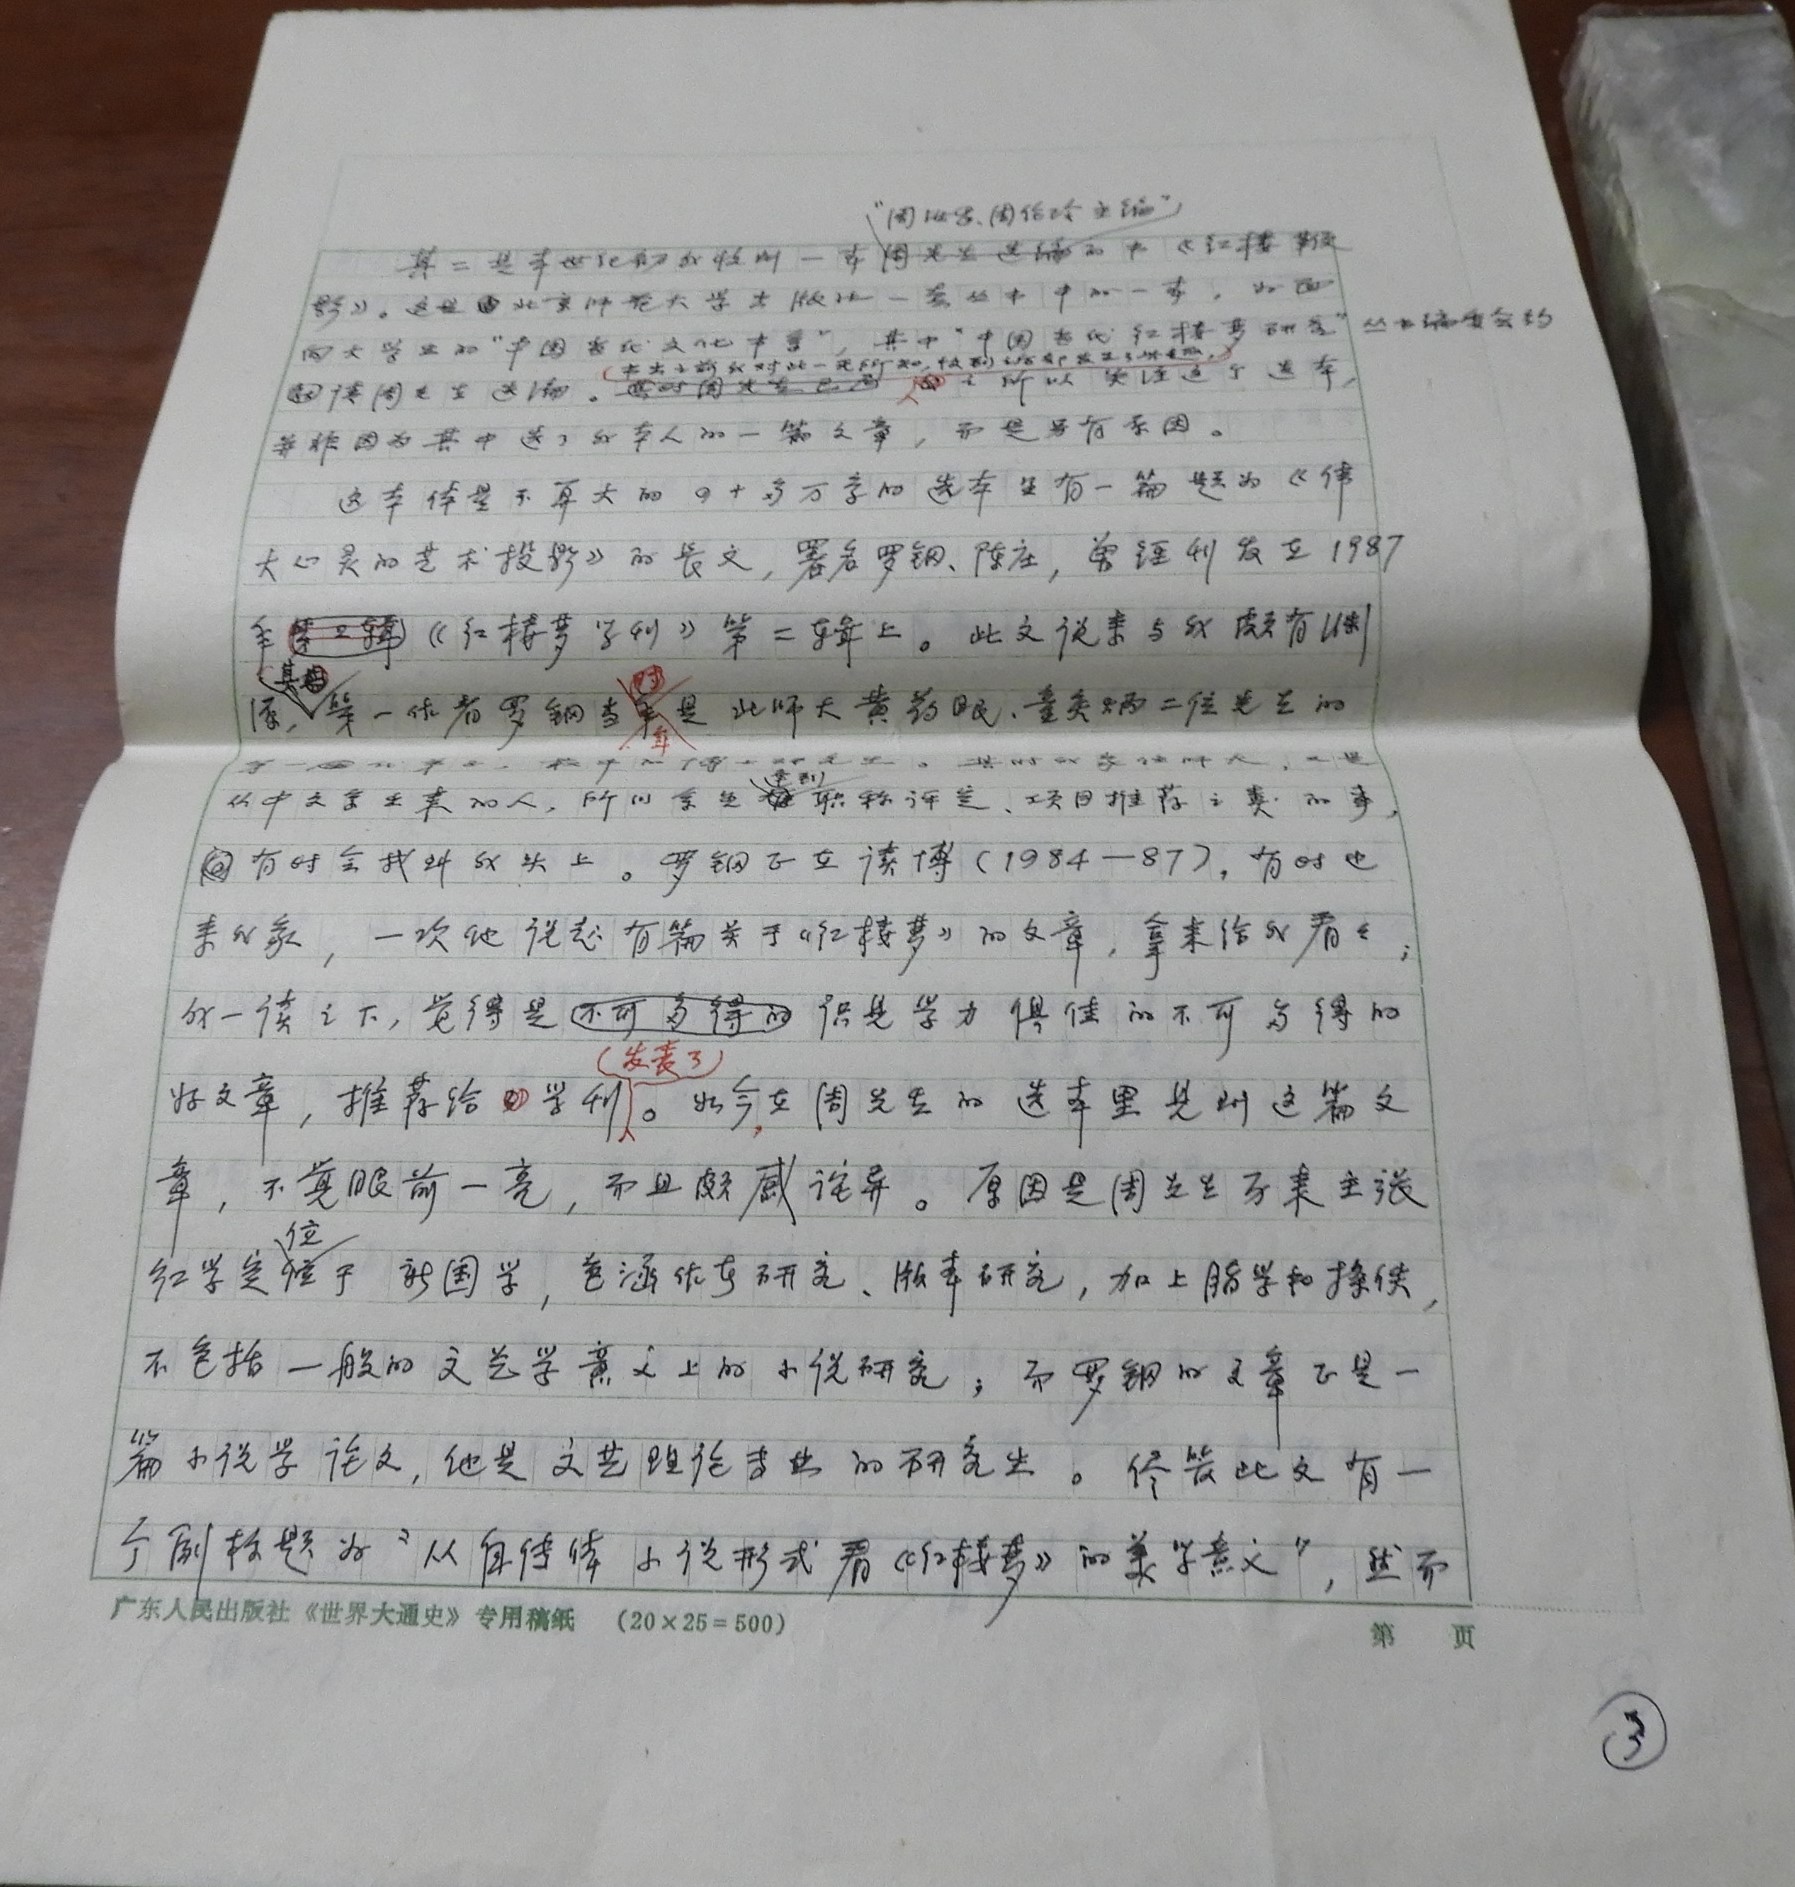 "周汝昌、周伦玲主编"
其二是本世纪初我收到一本周先生选编的书《红楼鞭
影》。这是由北京师范大学出版社一套丛书中的一本,如面
向大学生的"中国古代文化书系",其中"中国古代红楼梦研究"丛书编委会约
请周先生选编。之所以关注这个选本,
并非因为其中选了我本人的一篇文章,而是另有原因。
这本体量不算大的四十多万字的选本里有一篇题为《伟
大心灵的艺术投影》的长文,署名罗钢、陈庄,曾经刊发在1987
年第二辑《红楼梦学刊》第二辑上。此文说来与我颇有渊
其
时
源,第一作者罗钢当年是北师大黄药眠、童庆炳二位先生的
年
从中文系出来的人,所以系里职称评定、项目推荐之类的事,
有时会找到我头上。罗钢正在读博(1984—87),有时也
来我家,一次他说起有篇关于《红楼梦》的文章,拿来给我看看;
我一读之下,觉得是不可多得的识见学力俱佳的不可多得的
发表了
好文章,推荐给学刊。如今在周先生的选本里见到这篇文
章,不觉眼前一亮,而且颇感诧异。原因是周先生历来主张
位
红学定位于新国学,包涵作者研究、版本研究,加上脂学和探佚,
不包括一般的文艺学意义上的小说研究;而罗钢的文章正是一
篇小说学论文,他是文艺理论专业的研究生。尽管此文有一
个副标题为"从自传体小说形式看《红楼梦》的美学意义",然而
广东人民出版社《世界大通史》专用稿纸 (20×25=500) 第 页
3